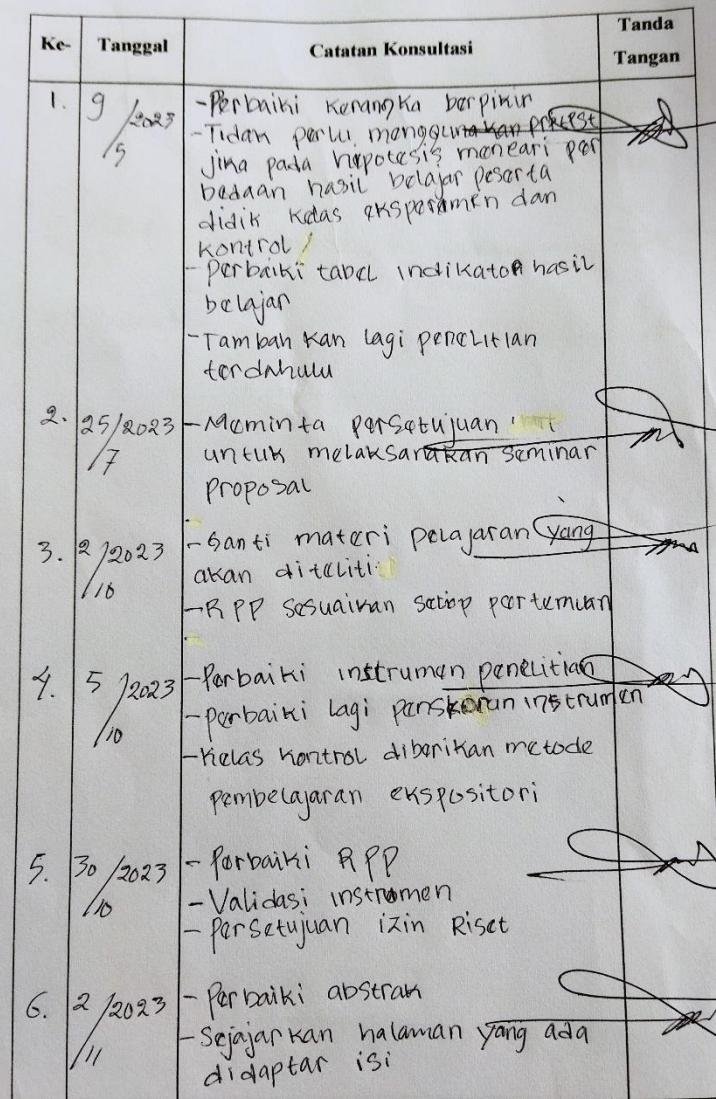 Ke- Tanggal Catatan Konsultasi Tanda Tangan
1. 9/5 2023 -Perbaiki kerangka berpikir
-Tidak perlu menggunakan pretest
jika pada hipotesis mencari per
bedaan hasil belajar peserta
didik kelas eksperimen dan
kontrol
-Perbaiki tabel indikator hasil
belajar
-Tambahkan lagi penelitian
terdahulu
2. 25/7 2023 -Meminta persetujuan
untuk melaksanakan seminar
proposal
3. 2/10 2023 -Ganti materi pelajaran yang
akan diteliti
-RPP sesuaikan setiap pertemuan
4. 5/10 2023 -Perbaiki instrumen penelitian
-perbaiki lagi penskoran instrumen
-Kelas kontrol diberikan metode
pembelajaran ekspositori
5. 30/10 2023 -Perbaiki RPP
-Validasi instrumen
-Persetujuan izin Riset
6. 2/11 2023 -Perbaiki abstrak
-Sejajarkan halaman yang ada
didaptar isi